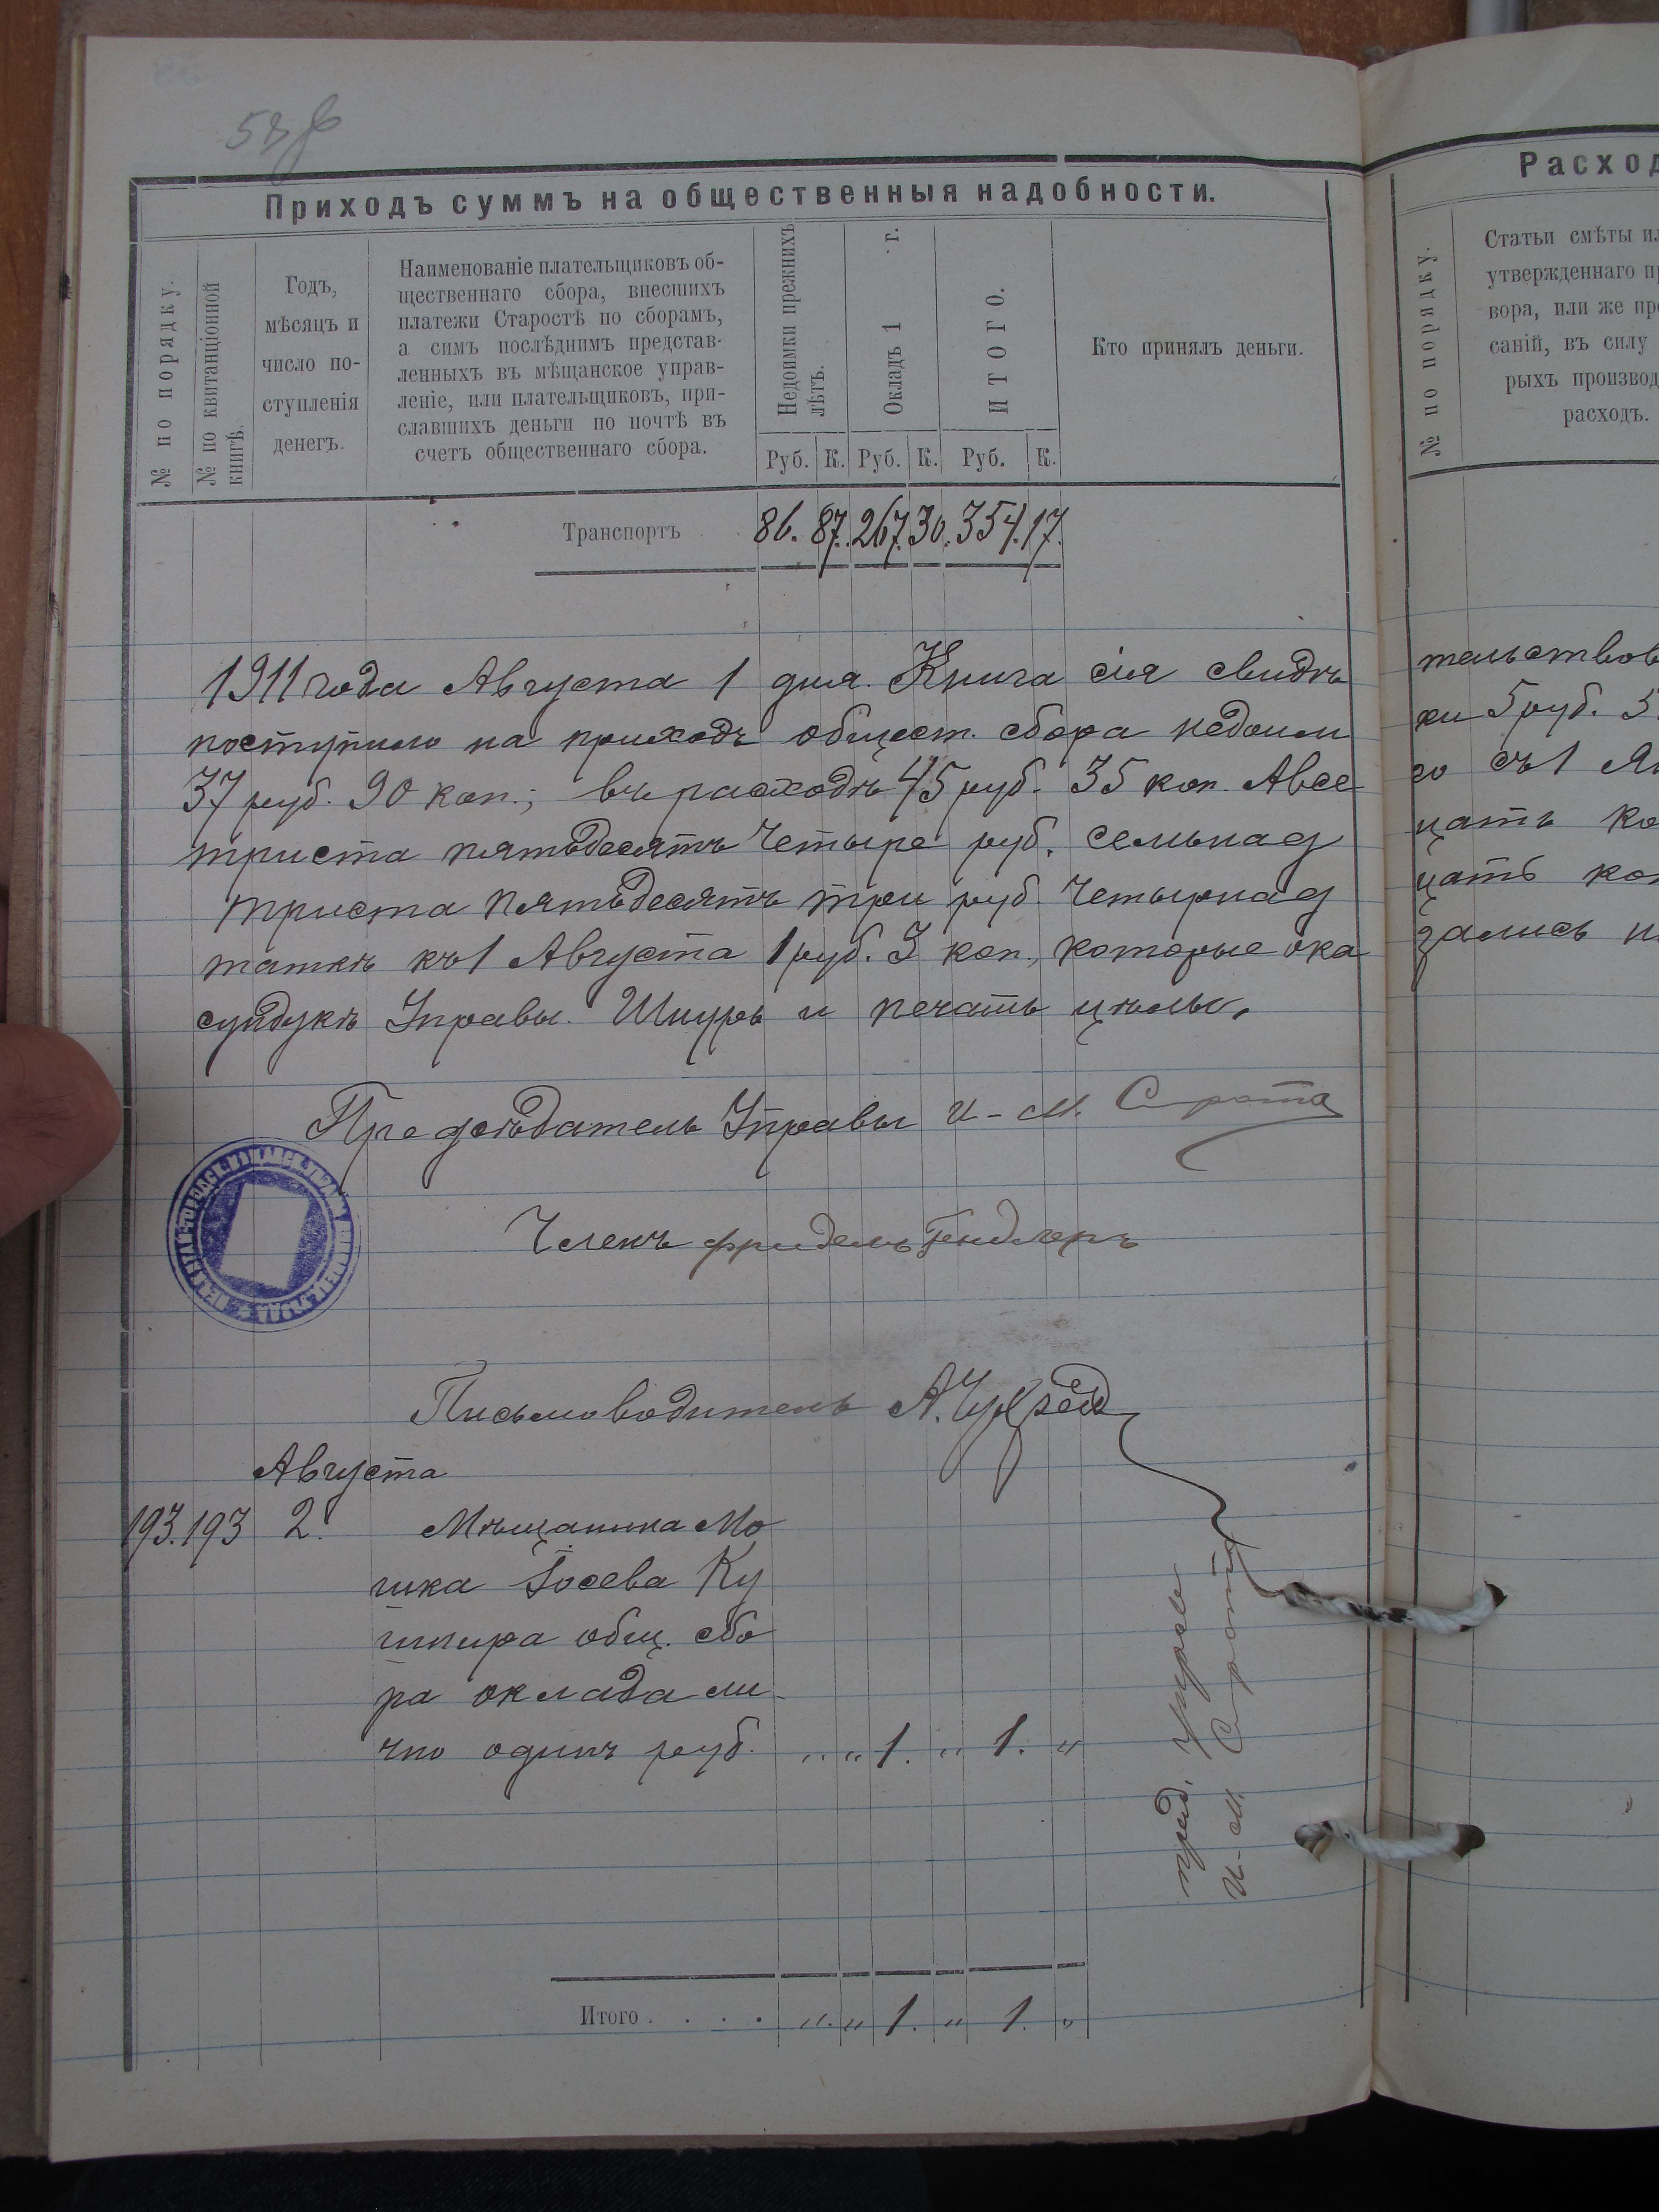 Приходъ суммъ на общественныя надобности.
№ по порядку.
№ по квитанціонной книгѣ.
Годъ,
мѣсяцъ и
число по-
ступленія
денегъ.
Наименованіе плательщиковъ об-
щественнаго сбора, внесшихъ
платежи Старостѣ по сборамъ,
а симъ послѣднимъ представ-
ленныхъ въ мѣщанское управ-
леніе, или плательщиковъ, при-
славшихъ деньги по почтѣ въ
счетъ общественнаго сбора.
Недоимки прежнихъ лѣтъ.
Окладъ 1 г.
ИТОГО.
Кто принялъ деньги.
Руб. К. Руб. К. Руб. К.
Транспортъ 86. 87. 267. 30. 354. 17.
1911 года Августа 1 дня. Книга сія свидѣ
поступило на приходъ общест. сбора недоим
37 руб. 90 коп.; въ расходѣ 45 руб. 35 коп. А все
триста пятьдесятъ четыре руб. семьнад
триста пятьдесятъ три руб. четырнад
таткѣ къ 1 Августа 1 руб. 3 коп., которые ока
сундукѣ Управы. Шнуръ и печать цѣлы.
Предсѣдатель Управы И-М. Сирота
Членъ Фридель Гендлеръ
Письмоводитель А.
Августа
193. 193 2. Мѣщанина Мо
шка Іосева Ку
шнира общ. сбо
ра оклада ли-
чно одинъ руб. " " 1. " 1. "
пред. Управы
И-М. Сирота
Итого . . . . " " 1. " 1. "
Расход
№ по порядку.
Статьи смѣты ил
утвержденнаго пр
вора, или же пре
саній, въ силу
рыхъ производ
расходъ.
тельствов
ки 5 руб. 5
го съ 1 Ян
цать ко
цать коп
зались н